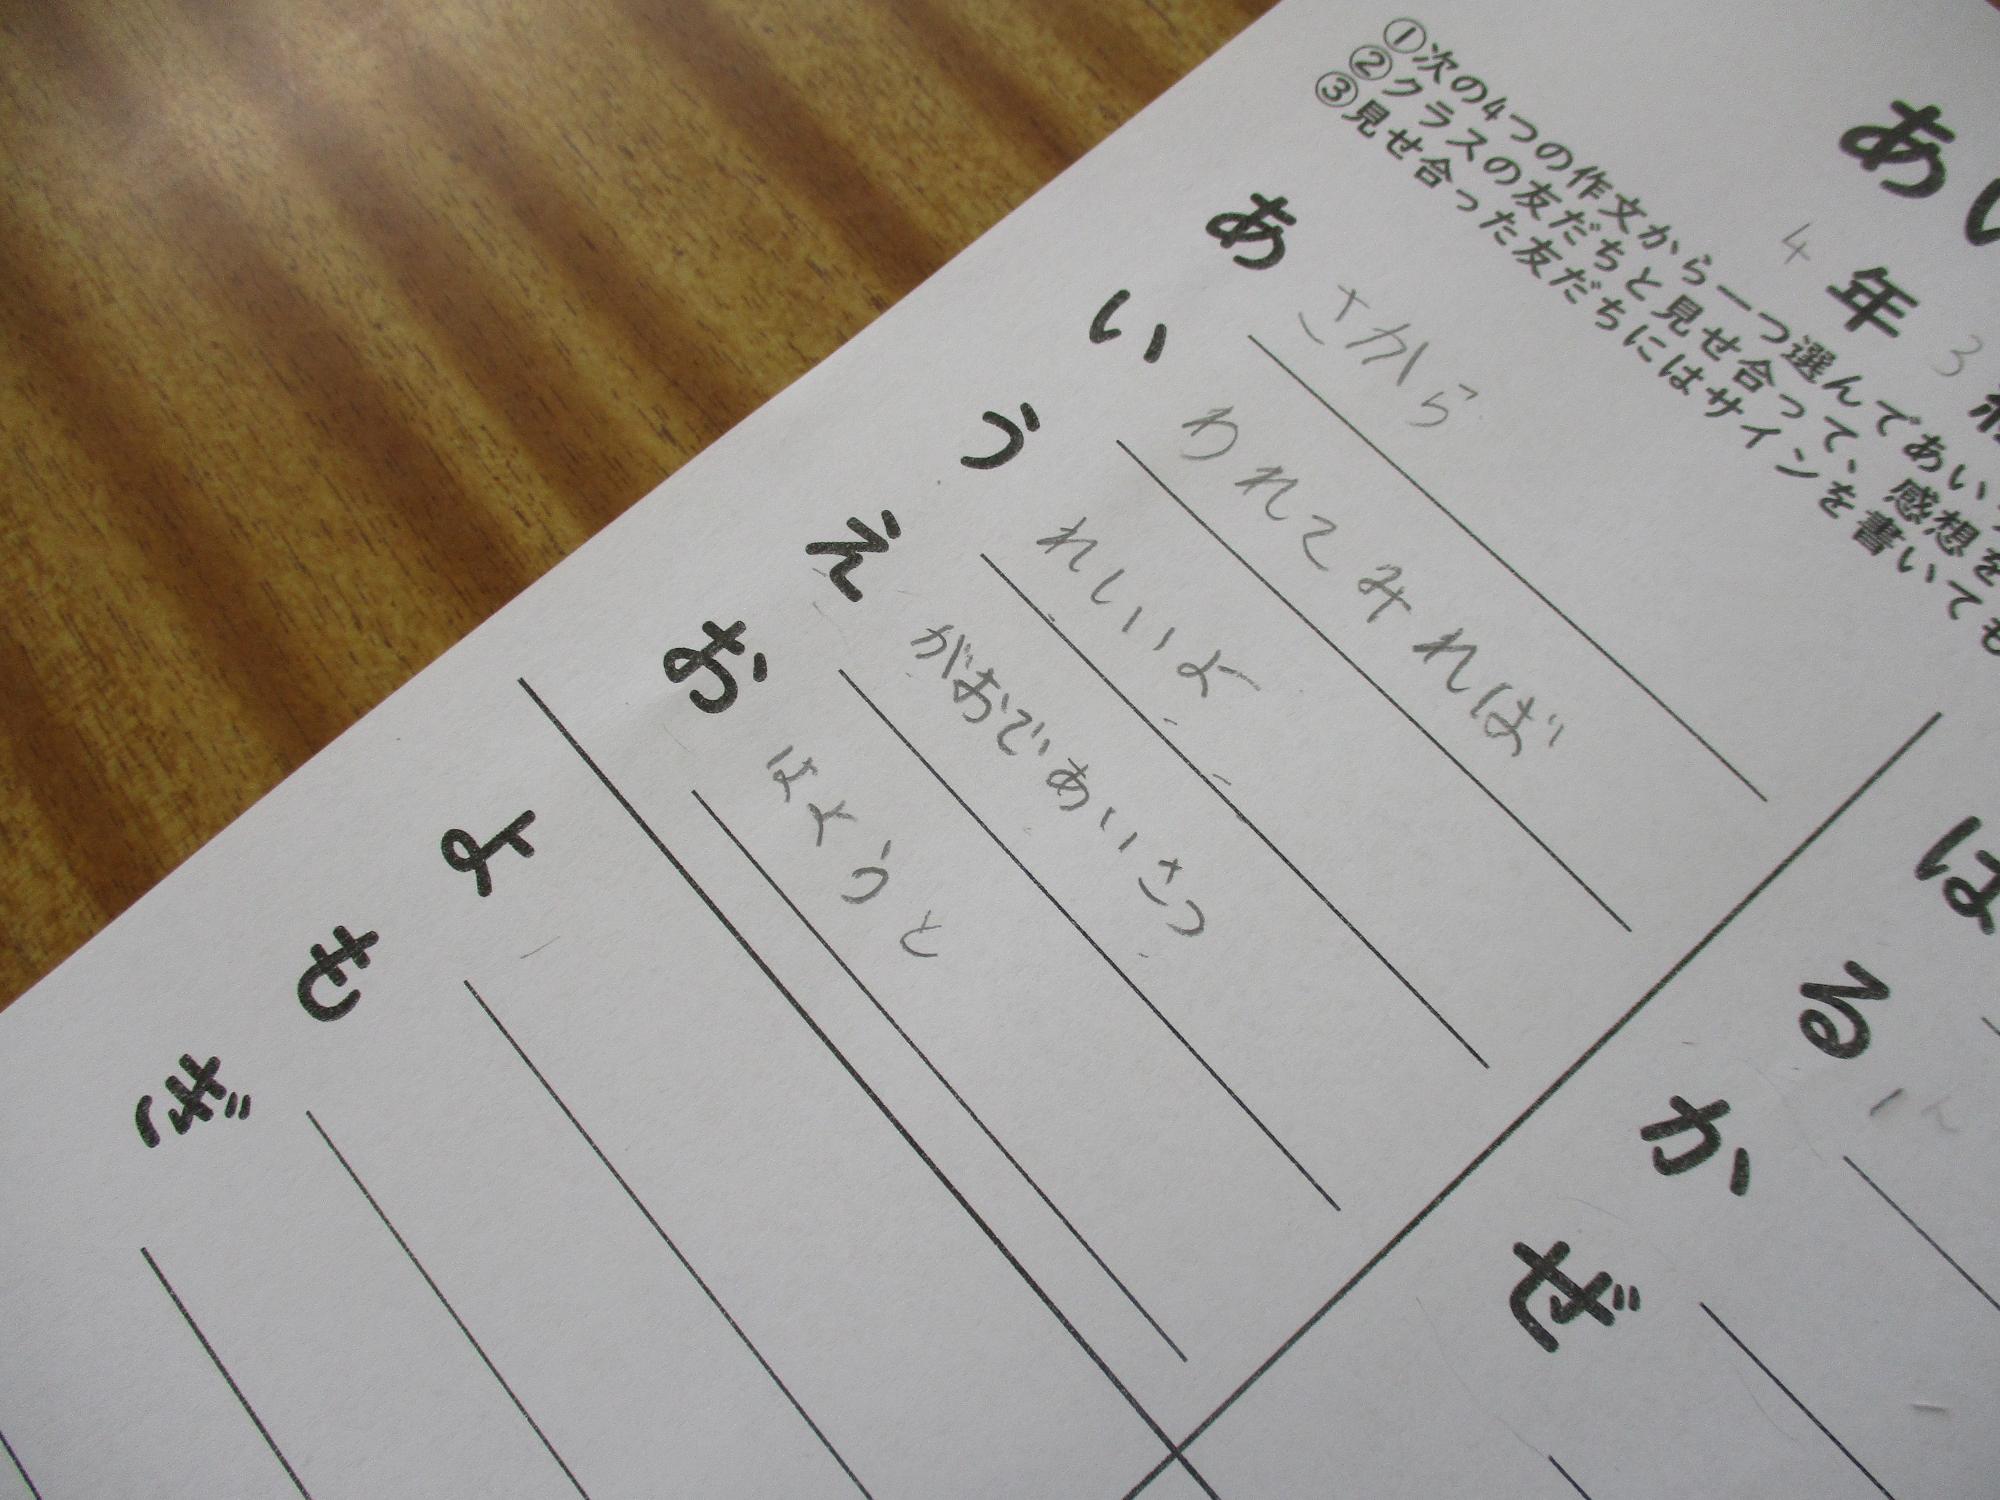 あい
4年 3組
①次の4つの作文から一つ選んであい
②クラスの友だちと見せ合って、感想を
③見せ合った友だちにはサインを書いても
あ さから
い われてみれば
う れしいよ
え がおであいさつ
お はようと
は
る
か
ぜ
よ
も
ぎ